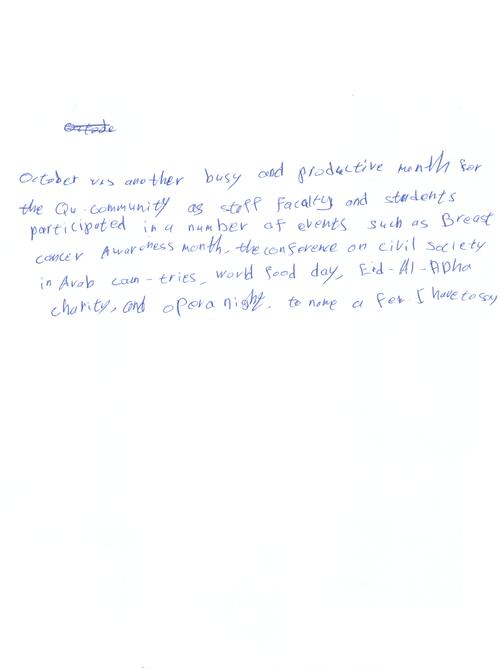 October was another busy and productive month for
the Qu community as staff Faculty and students
participated in a number of events such as Breast
cancer Awareness month, the conference on civil society
in Arab coun-tries, world food day, Eid-Al-ADha
charity, and opera night. to name a few I have to say